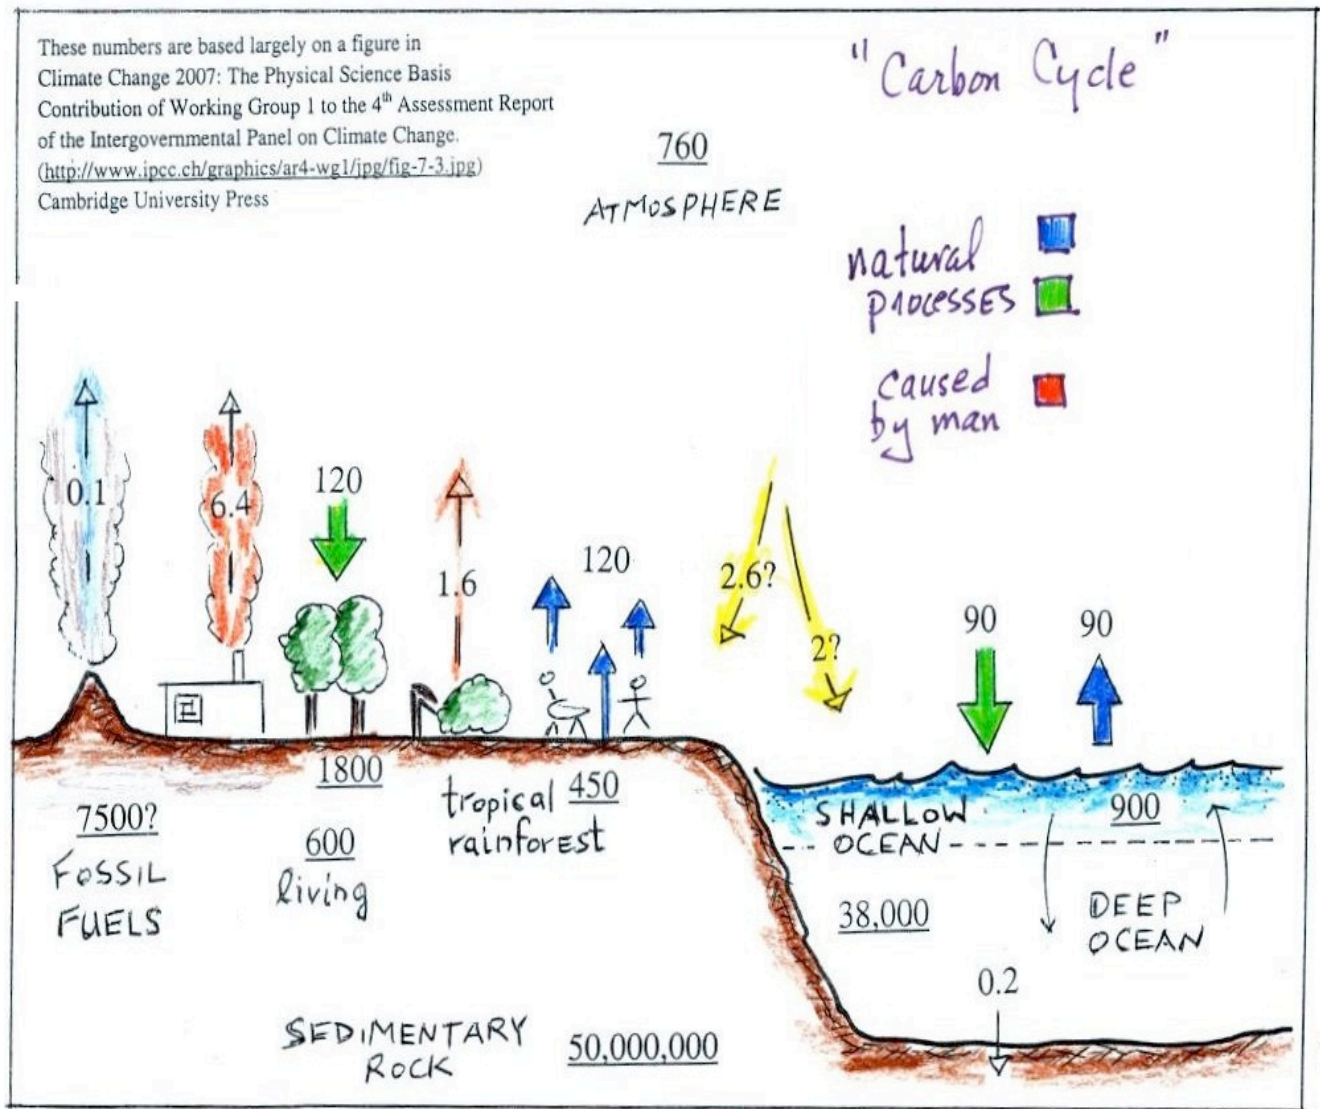 These numbers are based largely on a figure in
Climate Change 2007: The Physical Science Basis
Contribution of Working Group 1 to the 4th Assessment Report
of the Intergovernmental Panel on Climate Change.
(http://www.ipcc.ch/graphics/ar4-wg1/jpg/fig-7-3.jpg)
Cambridge University Press
"Carbon Cycle"
760
ATMOSPHERE
natural
processes
caused
by man
0.1
6.4
120
1.6
120
2.6?
2?
90
90
1800
7500?
FOSSIL
FUELS
600
living
tropical
rainforest
450
SHALLOW
OCEAN
900
38,000
DEEP
OCEAN
0.2
SEDIMENTARY
ROCK
50,000,000